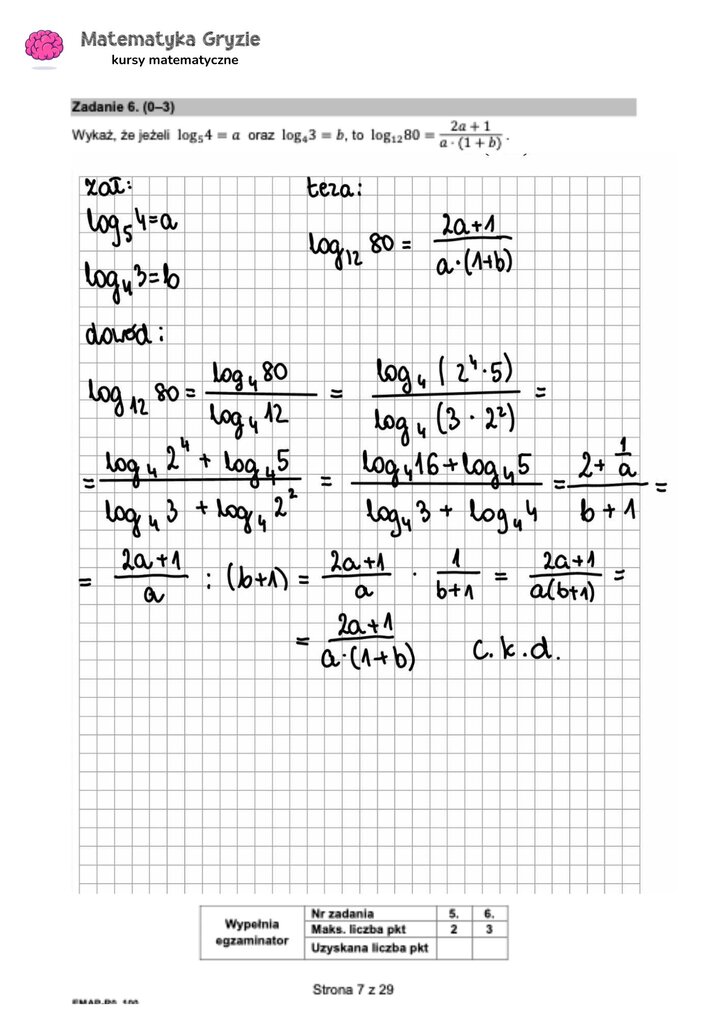 Matematyka Gryzie
kursy matematyczne
Zadanie 6. (0–3)
Wykaż, że jeżeli log₅4 = a oraz log₄3 = b, to log₁₂80 = (2a + 1)/(a · (1 + b)) .
zał: teza:
log₅4=a log₁₂80 = (2a+1)/(a·(1+b))
log₄3=b
dowód:
log₁₂80 = (log₄80)/(log₄12) = (log₄(2⁴·5))/(log₄(3·2²)) =
= (log₄2⁴ + log₄5)/(log₄3 + log₄2²) = (log₄16+log₄5)/(log₄3 + log₄4) = (2+1/a)/(b+1) =
= (2a+1)/a : (b+1) = (2a+1)/a · 1/(b+1) = (2a+1)/(a(b+1)) =
= (2a+1)/(a·(1+b)) c.k.d.
Wypełnia egzaminator Nr zadania 5. 6.
Maks. liczba pkt 2 3
Uzyskana liczba pkt
Strona 7 z 29